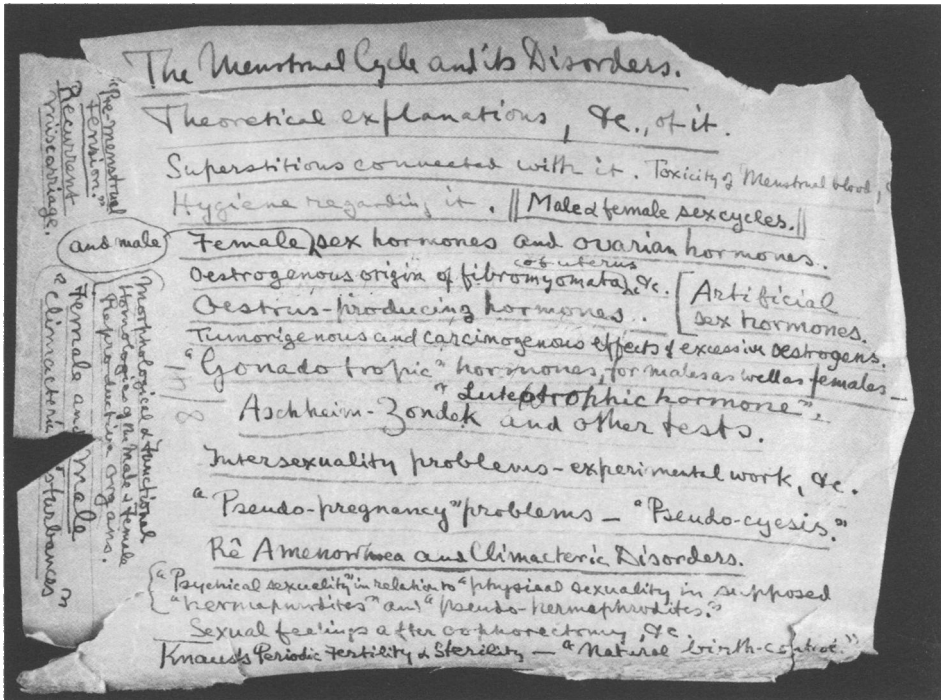 The Menstrual Cycle and its Disorders.
Theoretical explanations, &c., of it.
Superstitions connected with it. Toxicity of Menstrual blood,
Hygiene regarding it. || Male & female sex cycles. ||
and male
Female sex hormones and ovarian hormones.
Oestrogenous origin of fibromyomata, &c.
of uterus
Artificial
sex hormones.
Oestrus-producing hormones.
Tumorigenous and carcinogenous effects of excessive oestrogens.
"Gonadotropic" hormones, for males as well as females —
"Luteotrophic hormone".
Aschheim-Zondek and other tests.
Intersexuality problems - experimental work, &c.
"Pseudo-pregnancy" problems — "Pseudo-cyesis."
Rê Amenorrhoea and Climacteric Disorders.
"Psychical sexuality" in relation to "physical sexuality in supposed
"hermaphrodites" and "pseudo-hermaphrodites."
Sexual feelings after oophorectomy, &c.
Knaus's Periodic Fertility & Sterility — "Natural birth-control."
"Pre-menstrual
tension."
Recurrent
miscarriage.
Morphological & functional
Homologies of the Male & Female
Reproductive organs.
Female and male
"climacteric disturbances"